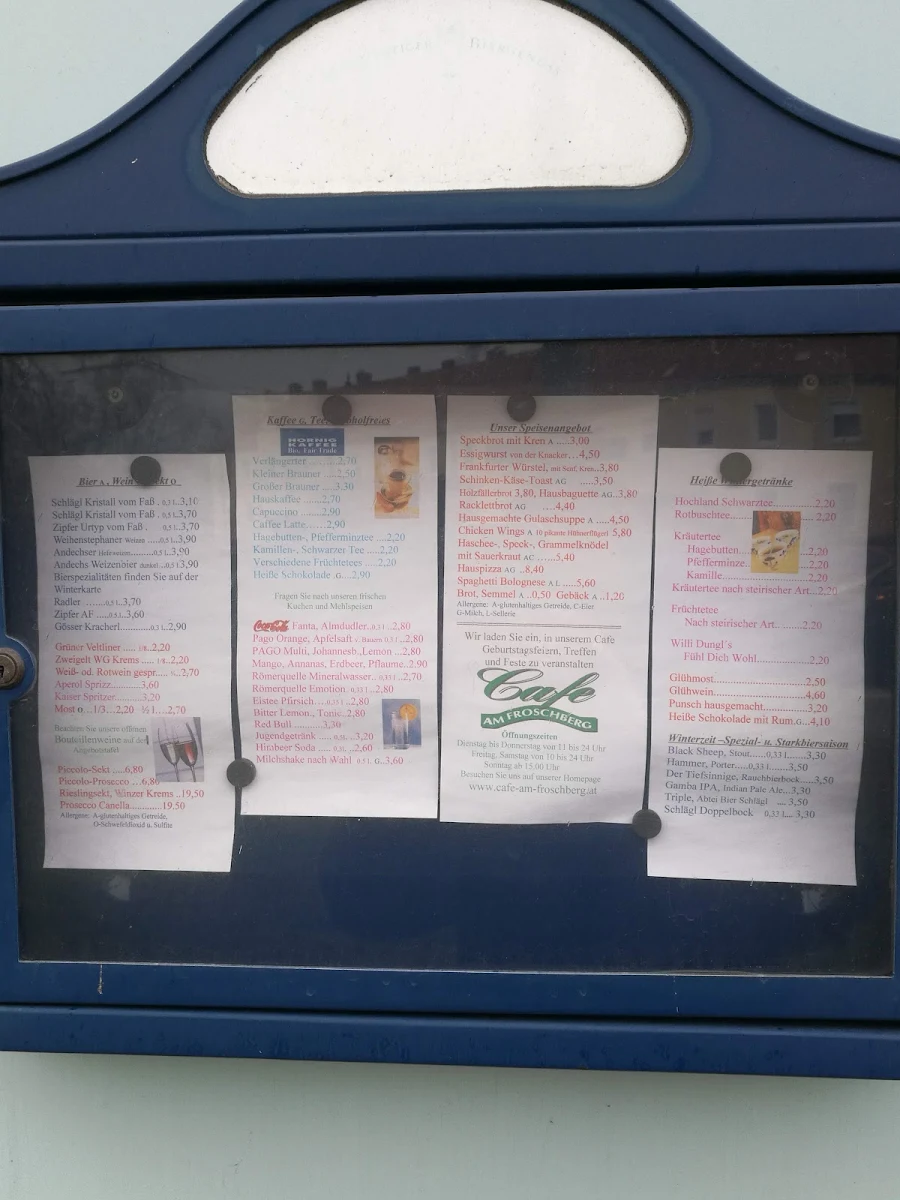 Bier A, Wein
Schlägl Kristall vom Faß . 0,3 l...3,10
Schlägl Kristall vom Faß . 0,5 l..3,70
Zipfer Urtyp vom Faß . 0,5 l..3,70
Weihenstephaner Weizen ....0,5 l..3,90
Andechser Hefeweizen..........0,5 l..3,90
Andechs Weizenbier dunkel...0,5 l.3,90
Bierspezialitäten finden Sie auf der
Winterkarte
Radler ........0,5 l..3,70
Zipfer AF .....0,5 l..3,60
Gösser Kracherl.........0,3 l...2,90
Grüner Veltliner ..... 1/8..2,20
Zweigelt WG Krems .... 1/8...2,20
Weiß- od. Rotwein gespr..... ¼...2,70
Aperol Sprizz..........3,60
Kaiser Spritzer.........3,20
Most o ...1/3...2,20 ½ l....2,70
Beachten Sie unsere offenen
Bouteillenweine auf der
Angebotstafel
Piccolo-Sekt ....6,80
Piccolo-Prosecco ...6,80
Rieslingsekt, Winzer Krems ..19,50
Prosecco Canella...........19,50
Allergene: A-glutenhaltiges Getreide,
O-Schwefeldioxid u. Sulfite
Kaffee u. Tee, alkoholfreies
HORNIG
KAFFEE
Bio, Fair Trade
Verlängerter ..........2,70
Kleiner Brauner .....2,50
Großer Brauner ....3,30
Hauskaffee .......2,70
Capuccino ........2,90
Caffee Latte.......2,90
Hagebutten-, Pfefferminztee ....2,20
Kamillen-, Schwarzer Tee .....2,20
Verschiedene Früchtetees .....2,20
Heiße Schokolade .G....2,90
Fragen Sie nach unseren frischen
Kuchen und Mehlspeisen
Coca-Cola Fanta, Almdudler..0,3 l..2,80
Pago Orange, Apfelsaft v. Bauern 0,3 l .2,80
PAGO Multi, Johannesb.,Lemon ...2,80
Mango, Annanas, Erdbeer, Pflaume..2,90
Römerquelle Mineralwasser.. 0,33 l ..2,70
Römerquelle Emotion. 0,33 l ..2,80
Eistee Pfirsich......0,33 l ...2,80
Bitter Lemon., Tonic..2,80
Red Bull ..........3,30
Jugendgetränk ......0,5 l....3,20
Himbeer Soda ......0,5 l....2,60
Milchshake nach Wahl 0,5 l. G..3,60
Unser Speisenangebot
Speckbrot mit Kren A .....3,00
Essigwurst von der Knacker....4,50
Frankfurter Würstel, mit Senf, Kren...3,80
Schinken-Käse-Toast AG .....3,50
Holzfällerbrot 3,80, Hausbaguette AG..3,80
Racklettbrot AG .....4,40
Hausgemachte Gulaschsuppe A .....4,50
Chicken Wings A 10 pikante Hühnerflügerl 5,80
Haschee-, Speck-, Grammelknödel
mit Sauerkraut AC ......5,40
Hauspizza AG ..8,40
Spaghetti Bolognese A L .....5,60
Brot, Semmel A ..0,50 Gebäck A ..1,20
Allergene: A-glutenhaltiges Getreide, C-Eier
G-Milch, L-Sellerie
Wir laden Sie ein, in unserem Cafe
Geburtstagsfeiern, Treffen
und Feste zu veranstalten
Cafe
AM FROSCHBERG
Öffnungszeiten
Dienstag bis Donnerstag von 11 bis 24 Uhr
Freitag, Samstag von 10 bis 24 Uhr
Sonntag ab 15.00 Uhr
Besuchen Sie uns auf unserer Homepage
www.cafe-am-froschberg.at
Heiße Wintergetränke
Hochland Schwarztee...........2,20
Rotbuschtee..............2,20
Kräutertee
Hagebutten...2,20
Pfefferminze...2,20
Kamille.........2,20
Kräutertee nach steirischer Art...2,20
Früchtetee
Nach steirischer Art.. .....2,20
Willi Dungl´s
Fühl Dich Wohl..............2,20
Glühmost.......................2,50
Glühwein.......................4,60
Punsch hausgemacht...........3,20
Heiße Schokolade mit Rum.G...4,10
Winterzeit –Spezial- u. Starkbiersaison
Black Sheep, Stout.....0,33 l.......3,30
Hammer, Porter.....0,33 l.......3,50
Der Tiefsinnige, Rauchbierbock....3,50
Gamba IPA, Indian Pale Ale...3,30
Triple, Abtei Bier Schlägl .... 3,50
Schlägl Doppelbock 0,33 l.... 3,30